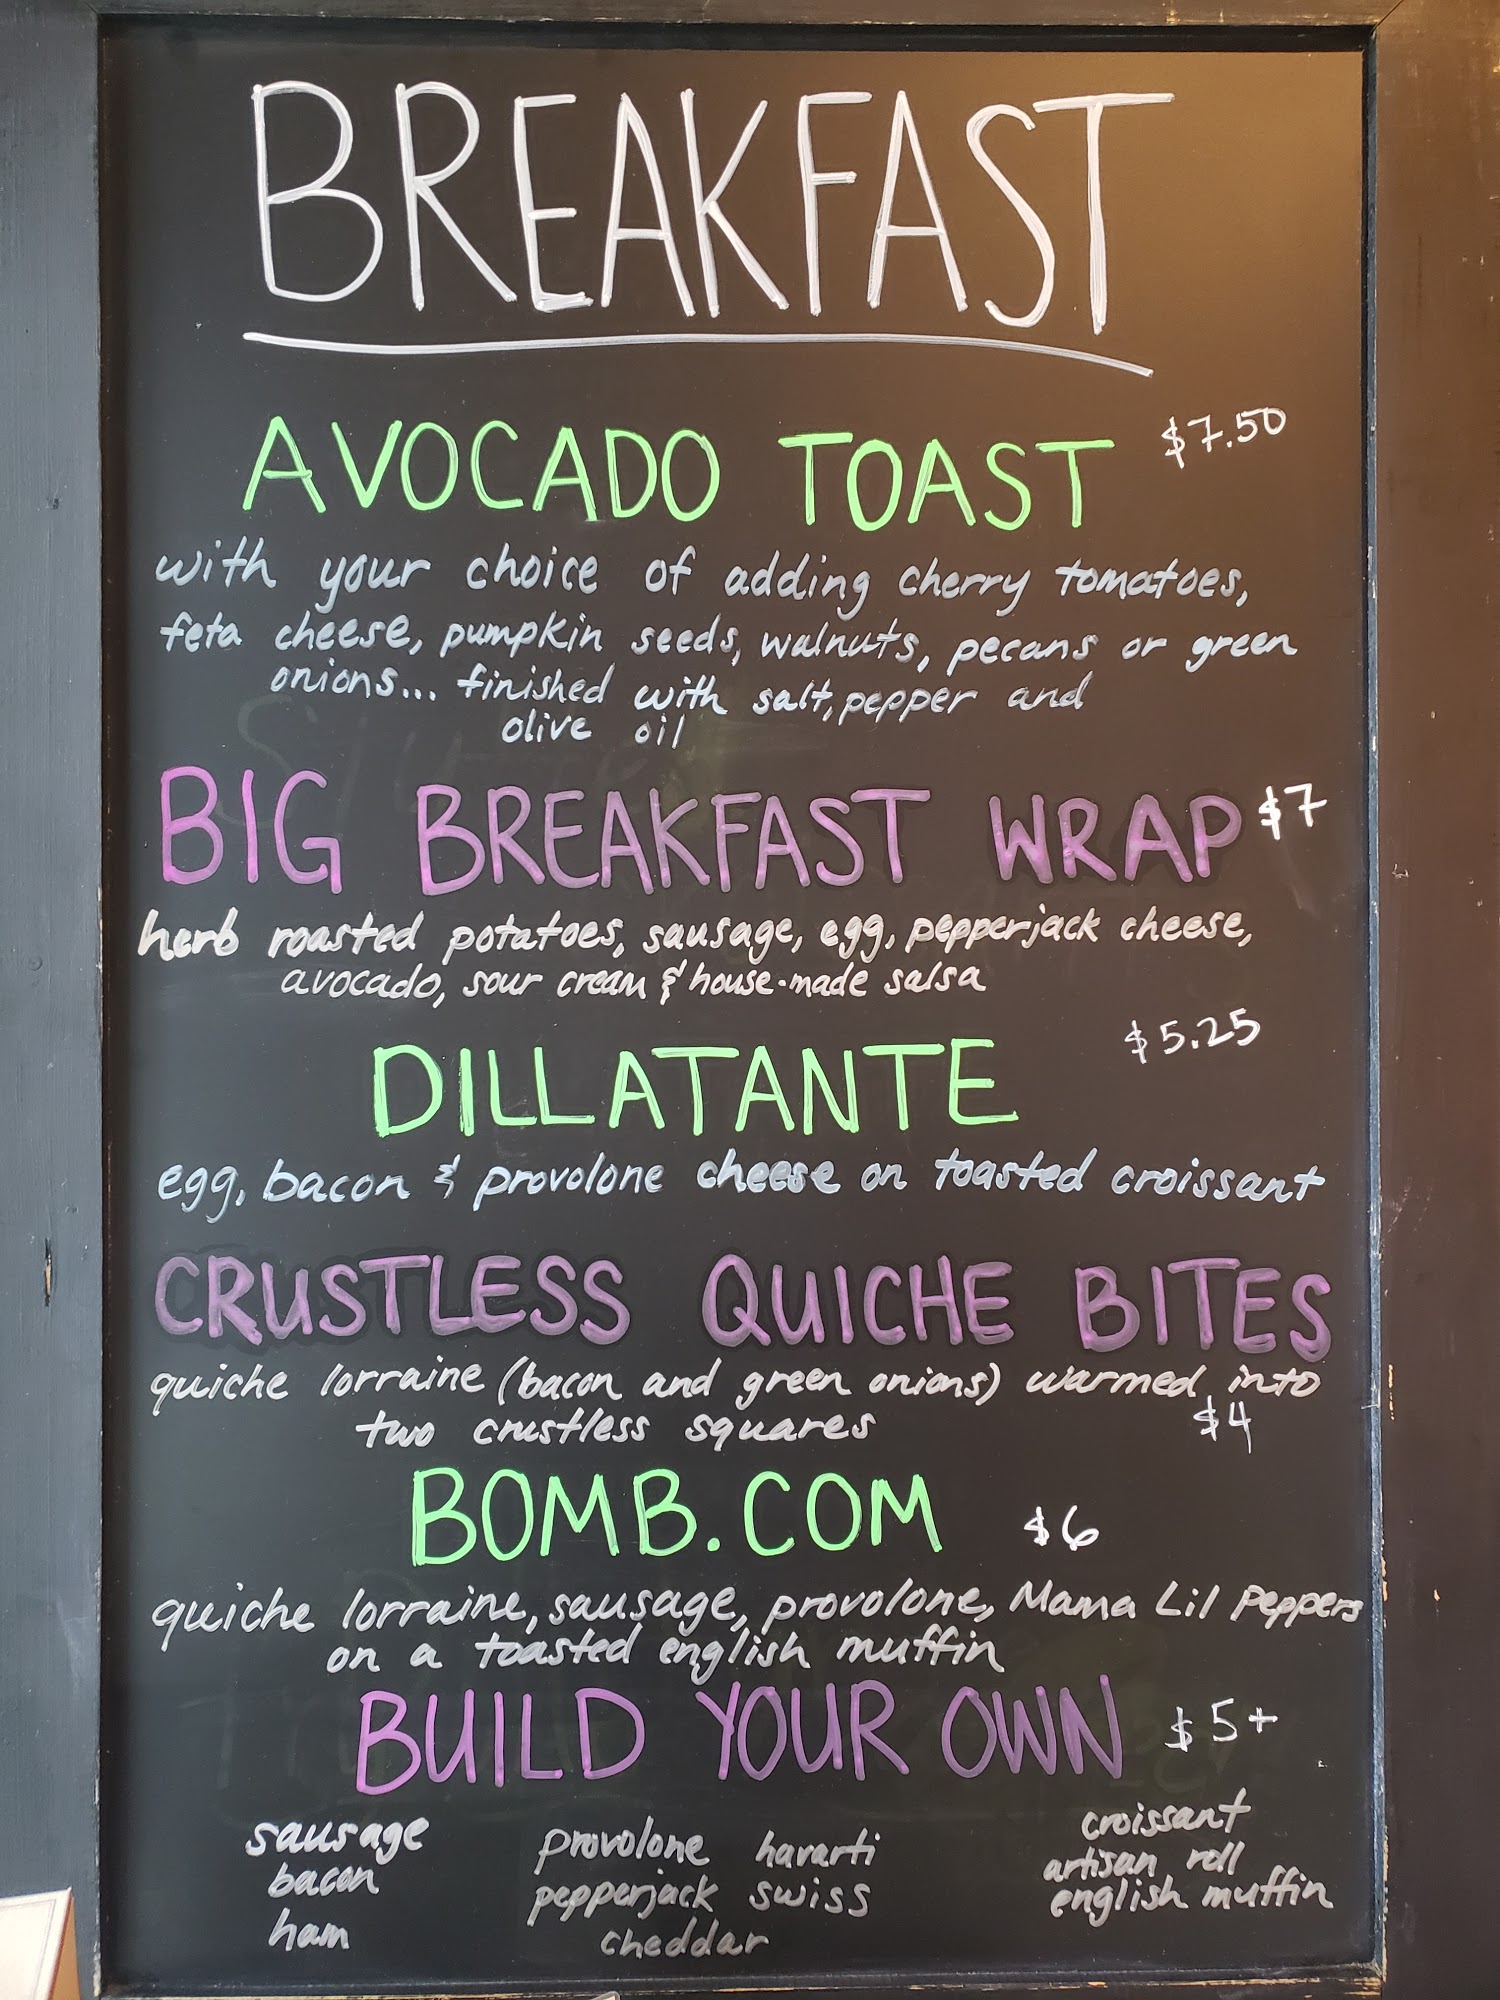 BREAKFAST
AVOCADO TOAST $7.50
with your choice of adding cherry tomatoes,
feta cheese, pumpkin seeds, walnuts, pecans or green
onions... finished with salt, pepper and
olive oil
BIG BREAKFAST WRAP $7
herb roasted potatoes, sausage, egg, pepperjack cheese,
avocado, sour cream & house-made salsa
DILLATANTE $5.25
egg, bacon & provolone cheese on toasted croissant
CRUSTLESS QUICHE BITES
quiche lorraine (bacon and green onions) warmed into
two crustless squares $4
BOMB.COM $6
quiche lorraine, sausage, provolone, Mama Lil Peppers
on a toasted english muffin
BUILD YOUR OWN $5+
sausage
bacon
ham
provolone havarti
pepperjack swiss
cheddar
croissant
artisan roll
english muffin